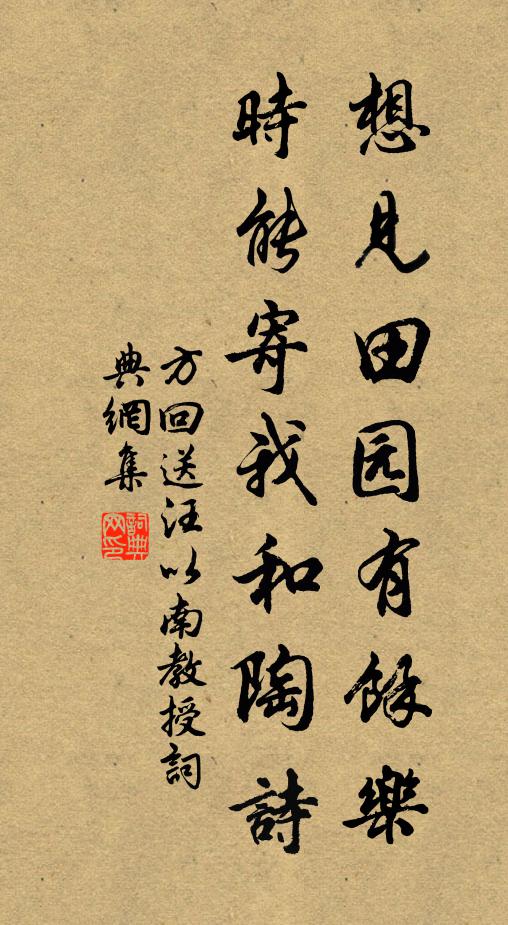 想見田园有餘樂
時能寄我和陶詩
方回送汪以南教授詞
典網集
詞典網印